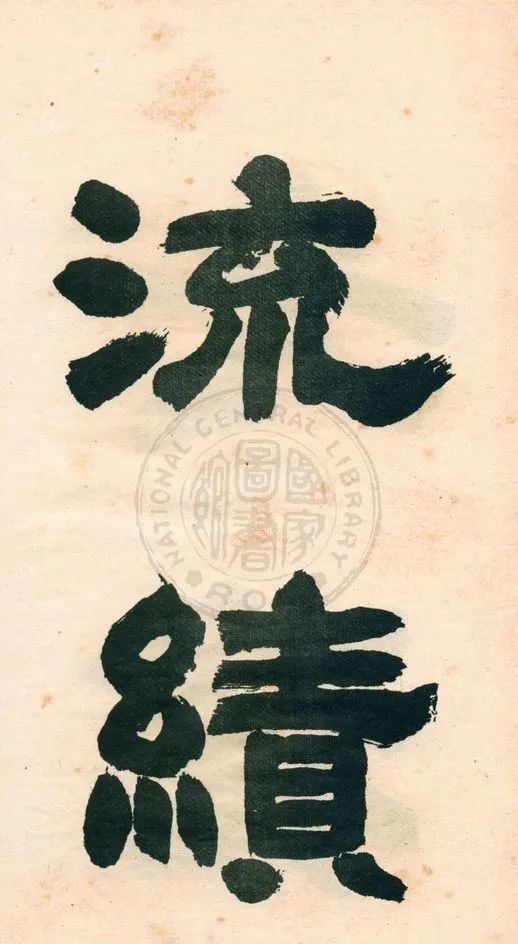 流
績
NATIONAL CENTRAL LIBRARY
國家
圖書
R.O.C.